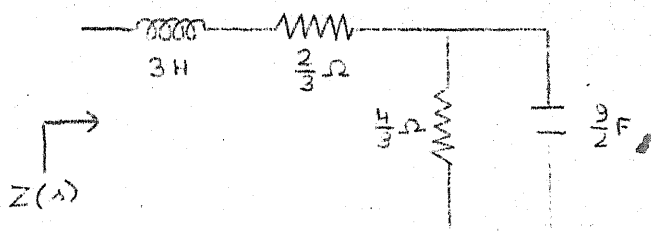 3H
2/3 Ω
4/3 Ω
9/2 F
Z(s)